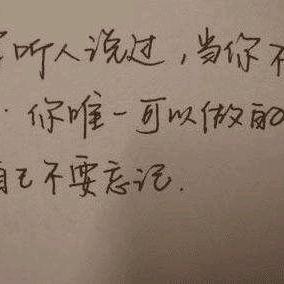 听人说过，当你不
. 你唯一可以做的
自己不要忘记.